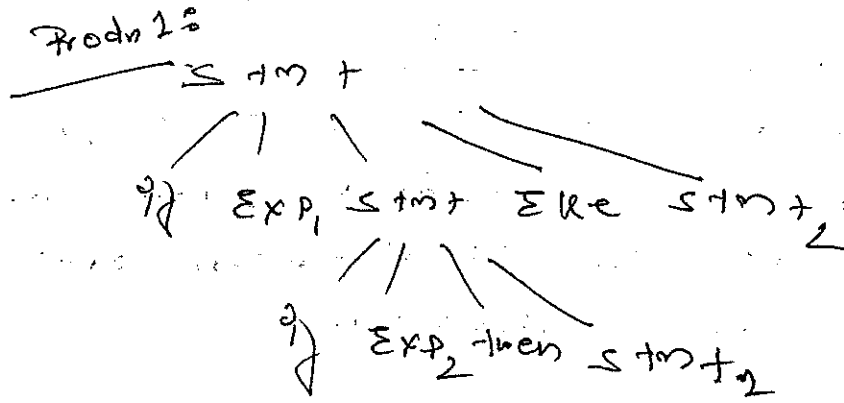 Prodn 1:
Stmt
if Exp1 Stmt Else Stmt2
if Exp2 then Stmt2